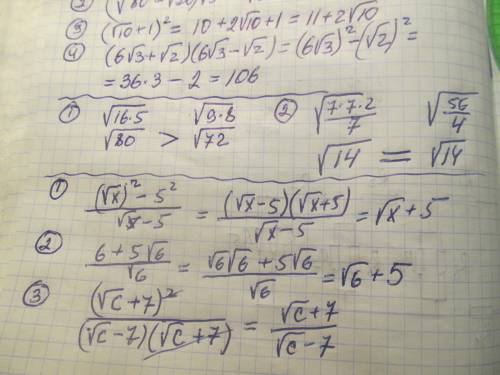 ③ (√10+1)² = 10+2√10+1 = 11+2√10
④ (6√3+√2)(6√3-√2) = (6√3)²-(√2)² =
= 36·3 - 2 = 106
① √16·5 √9·8 ② √(7·7·2/7) √(56/4)
√80 > √72 √14 = √14
① ((√x)²-5²)/(√x-5) = ((√x-5)(√x+5))/(√x-5) = √x+5
② (6+5√6)/√6 = (√6√6+5√6)/√6 = √6+5
③ (√c+7)²/((√c-7)(√c+7)) = (√c+7)/(√c-7)